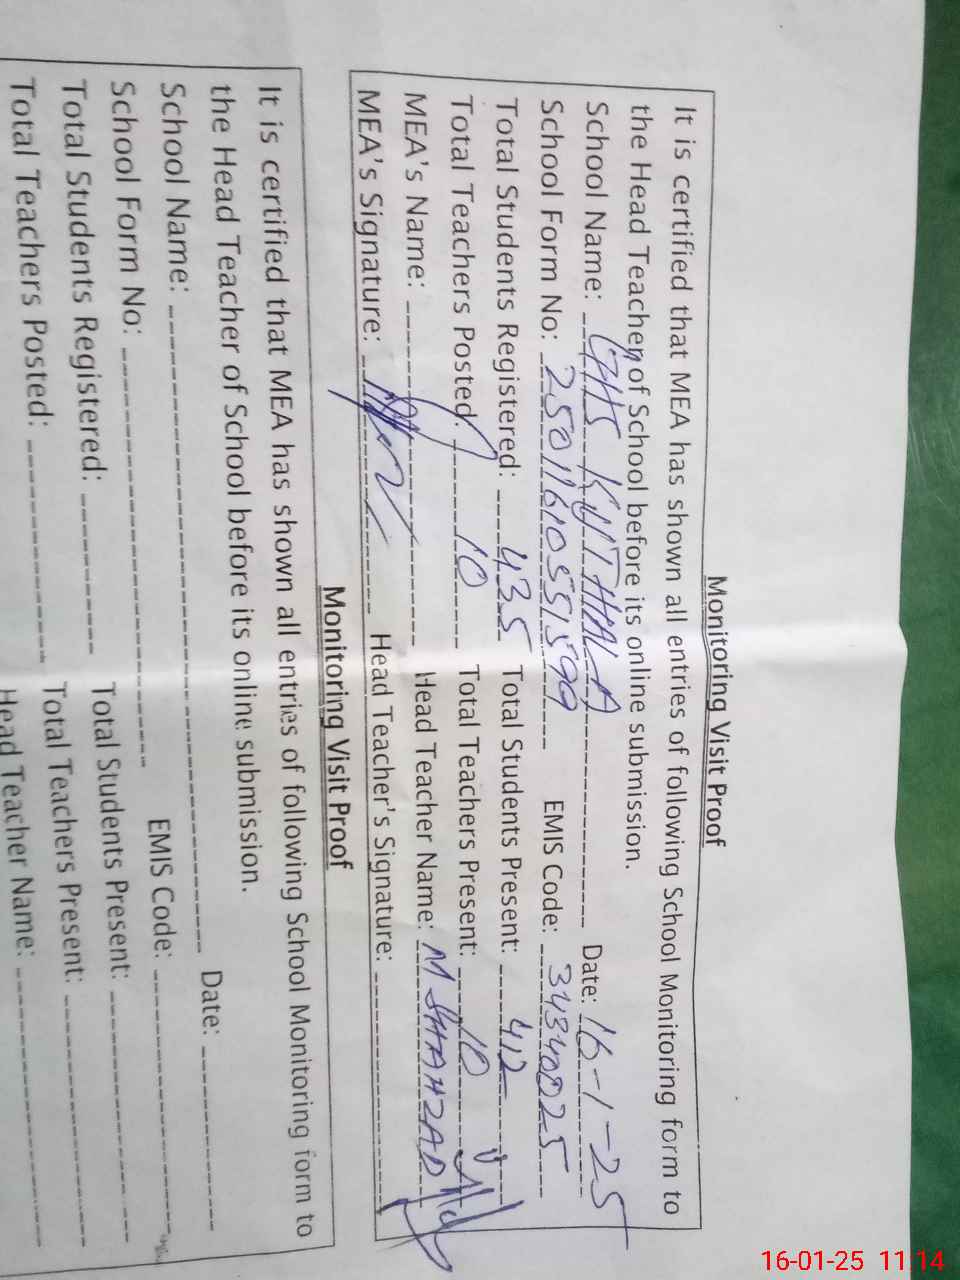 Monitoring Visit Proof
It is certified that MEA has shown all entries of following School Monitoring form to
the Head Teacher of School before its online submission.
School Name: GHS KUTHALA Date: 16-1-25
School Form No: EMIS Code:
Total Students Registered: 435 Total Students Present: 412
Total Teachers Posted: 10 Total Teachers Present: 10
MEA's Name: Head Teacher Name: M SHAHZAD
MEA's Signature: Head Teacher's Signature:
Monitoring Visit Proof
It is certified that MEA has shown all entries of following School Monitoring form to
the Head Teacher of School before its online submission.
School Name: Date:
School Form No: EMIS Code:
Total Students Registered: Total Students Present:
Total Teachers Posted: Total Teachers Present:
Head Teacher Name:
16-01-25 11:14